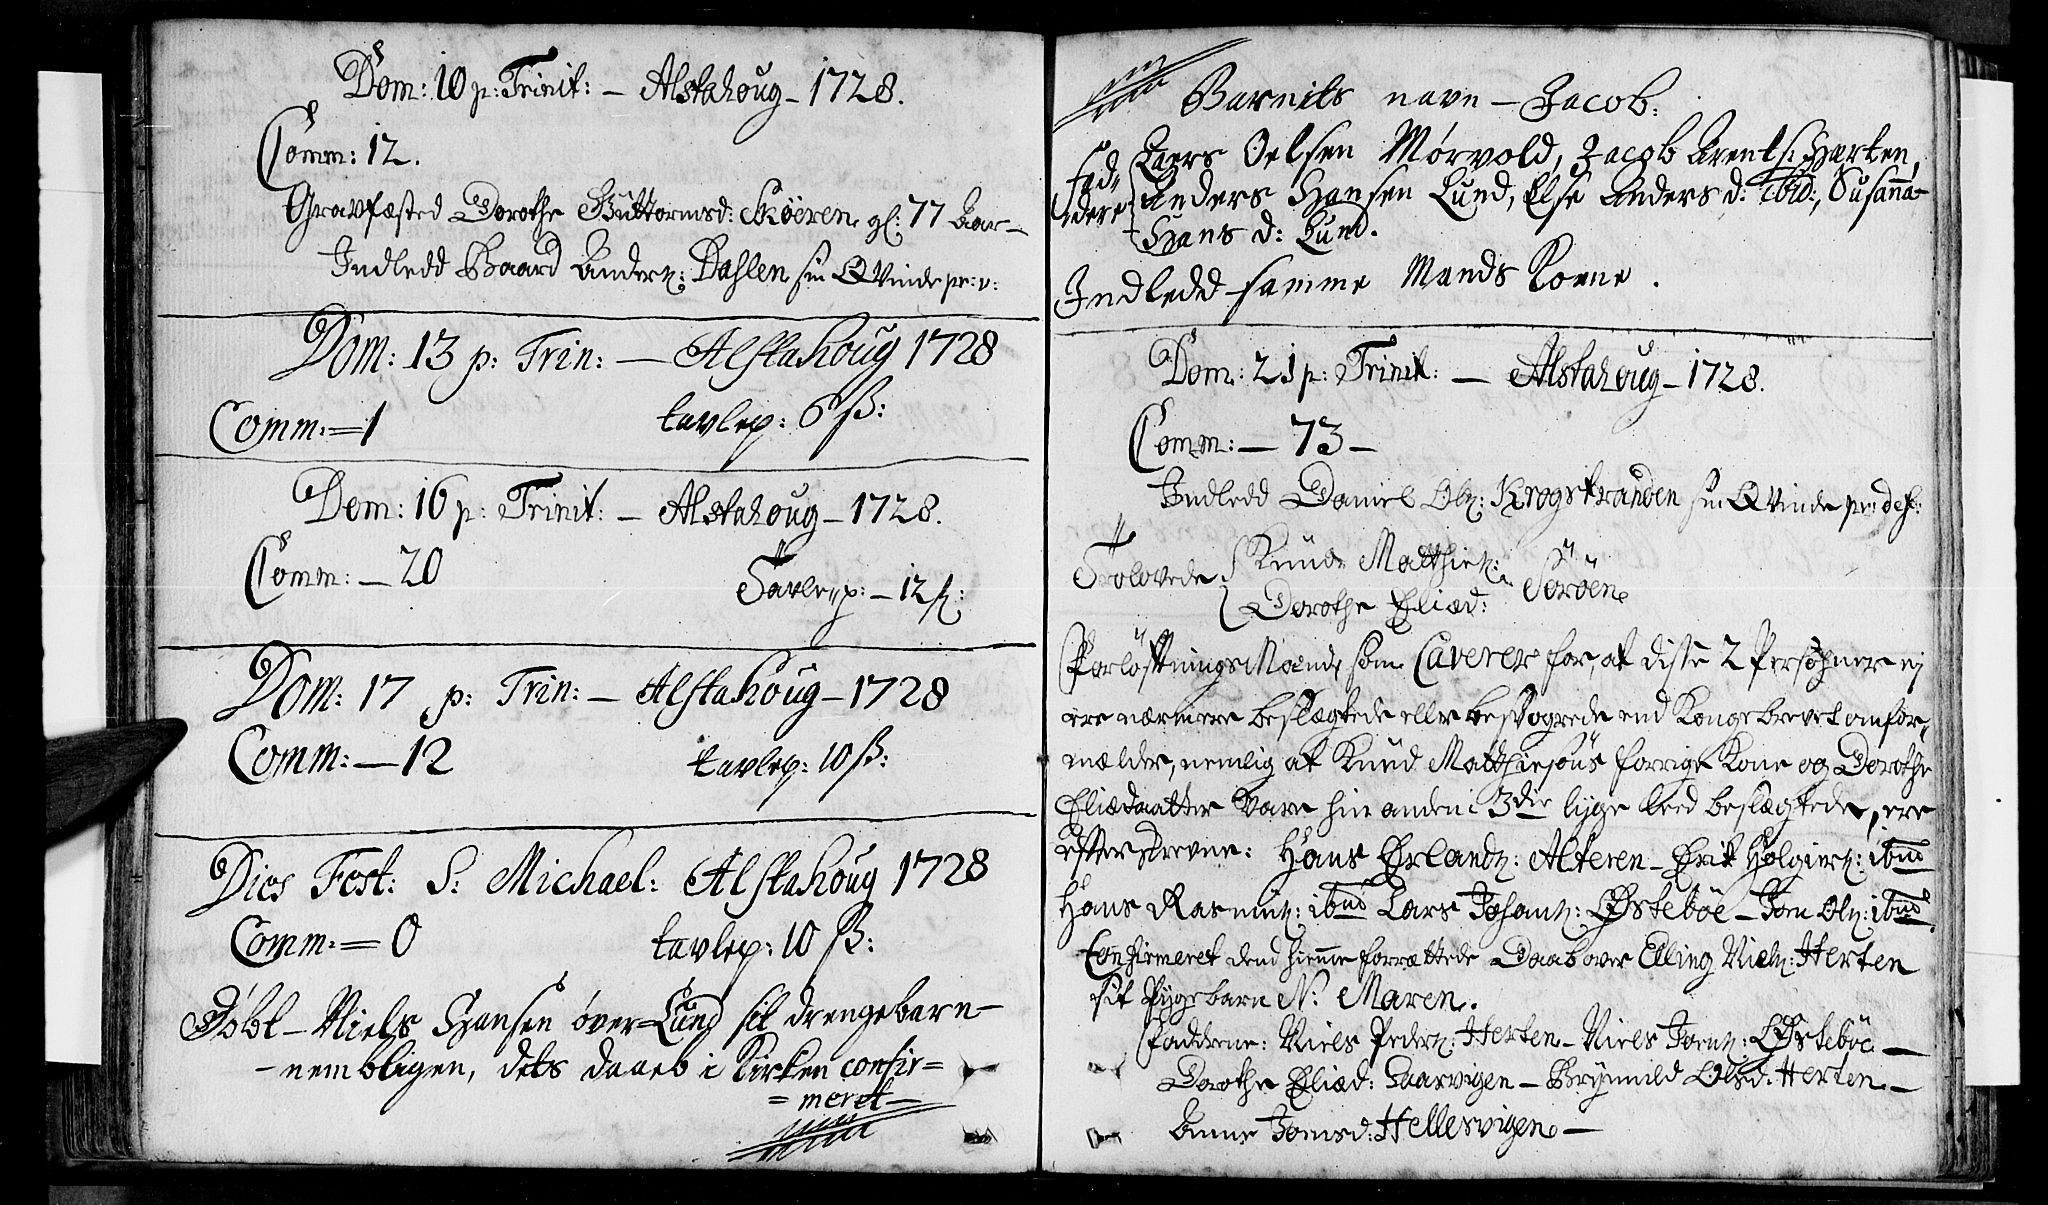 Dom: 10 p: Trinit: – Alstahoug – 1728.
Comm: 12.
Gravfæsted Dorothe Guttormsd: Skøeren gl: 77 Aar –
Indledd Baard Anders: Dahlen sin Qvinde pr: v:
Dom: 13 p: Trin: – Alstahoug 1728
Comm: = 1 tavlep: 6 ß:
Dom: 16 p: Trinit: – Alstahoug – 1728.
Comm: – 20 Tavlep: – 12 ß:
Dom: 17 p: Trin: – Alstahoug – 1728
Comm: – 12 tavlep: 10 ß:
Dies Fest: S: Michael: Alstahoug 1728
Comm: = 0 tavlep: 10 ß:
Døbt – Niels Hansen øver-Lund sit drengebarn –
– nembligen, dets daab i Kirken confir=
= meret –
Barnits navn – Jacob:
Fad= Laers Oelsen Mørvold, Jacob Arents: Hærten,
dere Anders Hansen Lund, Else Anders d: ibid:, Susanna
Hans d: Lund.
Indledd samme Mands Kone.
Dom: 21 p: Trinit: – Alstahoug – 1728.
Comm: – 73 –
Indledd Daniel Ols: Krogstranden sin Qvinde pr: def:
Trolovede Knud Matthis: Sørøen
Dorothe Eliæd:
Forløftnings Mænd, som Caverer for, at diste 2 Persohner ej
ere nærmere beslægtede eller besvogrede end Kongebrevet omfor=
mælder, nemlig at Knud Matthiesøns forrige Kone og Dorothe
Eliædaatter vare hin anden i 3die lige leed beslægtede, ere
efterskrevne: Hans Erlands: Alteren – Erik Holgiers: ibud
Hans Rasmus: ibud Lars Johans: Østebøe – Jon Ols: ibud.
Confirmeret dend hiemme forrættede Daab over Elling Niels: Herten
sit Pigebarn N: Maren.
Fadderne: Niels Peders: Herten – Niels Jons: Østebøe –
Dorothe Eliæd: Haarvigen – Brynnild Olsd: Herten –
Anne Jonsd: Hellesvigen –